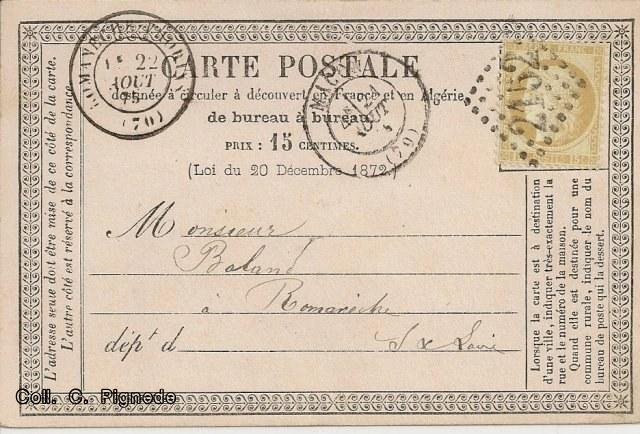 ROMANECHE-THORINS
1E 22
AOUT
75
(70)
CARTE POSTALE
destinée à circuler à découvert en France et en Algérie
de bureau à bureau
PRIX : 15 CENTIMES.
(Loi du 20 Décembre 1872.)
22
AOUT
(70)
2152
FRANC
15C
L'adresse seule doit être mise de ce côté de la carte.
L'autre côté est réservé à la correspondance.
Monsieur
Boland
à Romanèche
dépt d S & Loire
Lorsque la carte est à destination
d'une ville, indiquer très-exactement la
rue et le numéro de la maison.
Quand elle est destinée pour une
commune rurale, indiquer le nom du
bureau de poste qui la dessert.
Coll. C. Pignede